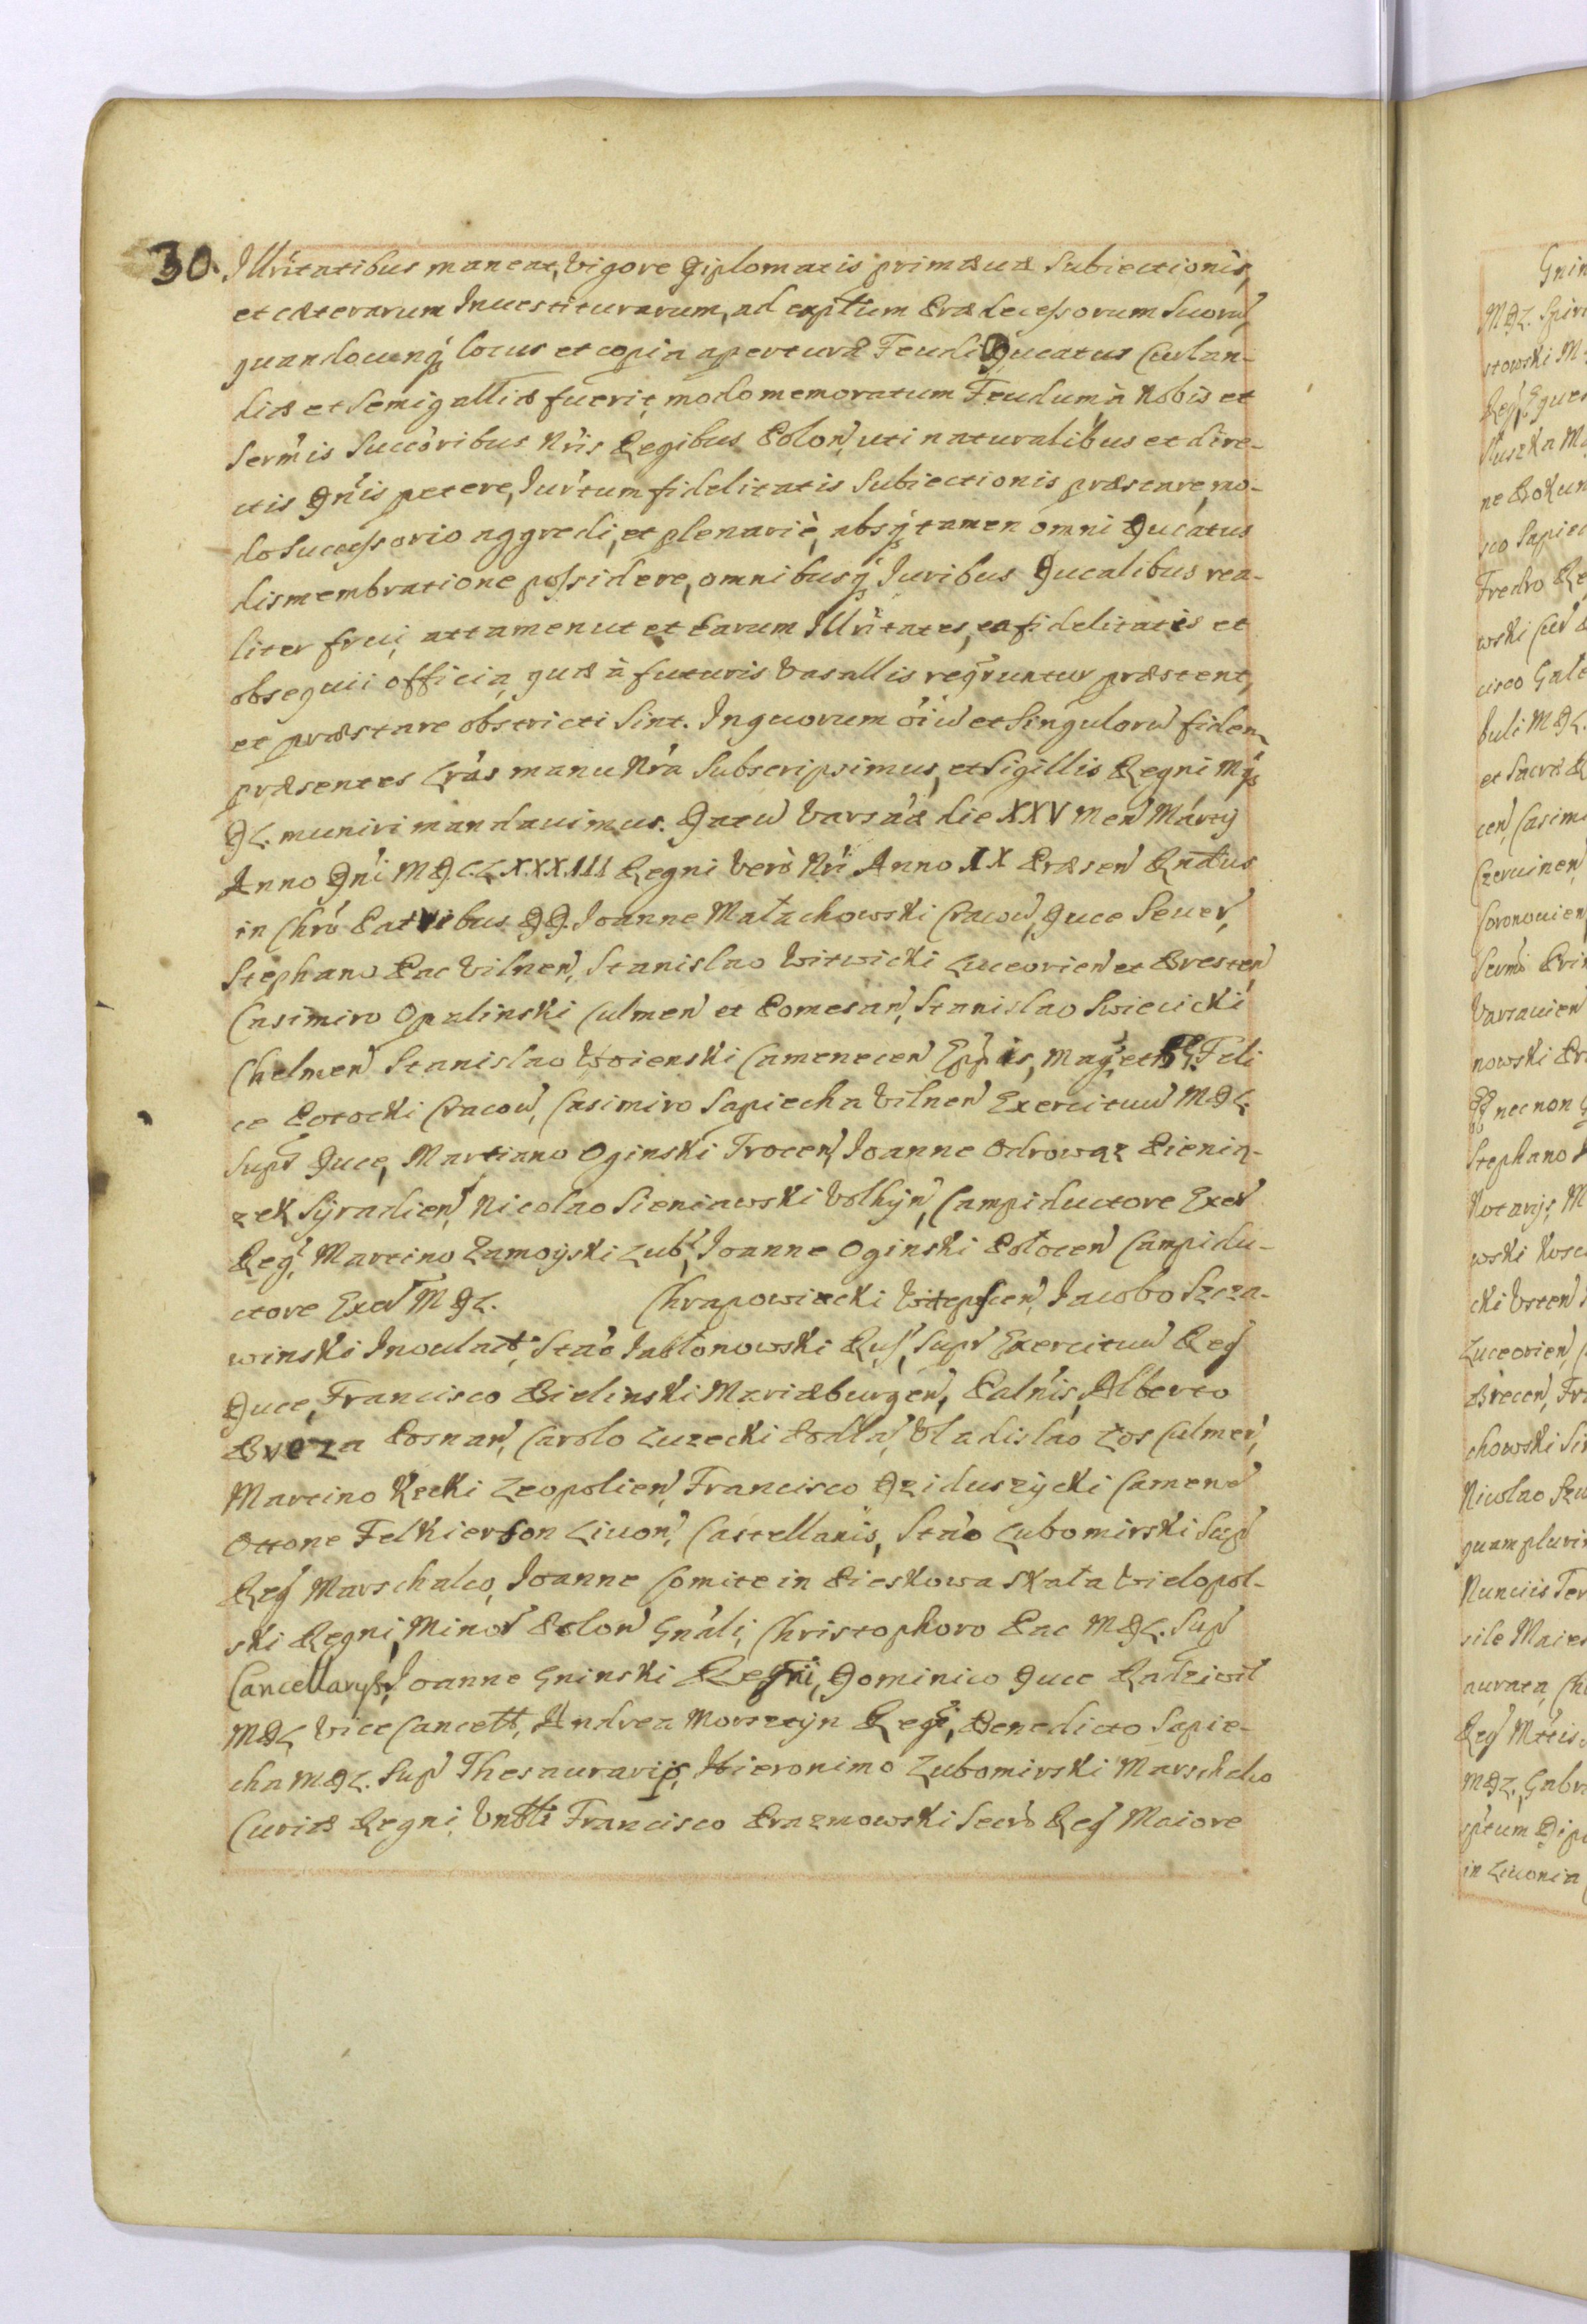 30. Illrítatibus maneat, vigore Diplomatis primæuæ Subiectionis,
et cæterarum Inuestiturarum, ad exptum Prædecessorum Suorũ,
quandocunq́ locus et copia aperturæ Feudi Ducatus Curlan-
diæ et Semigalliæ fuerit, modo memoratum Feudum à Nobis et
Sermis Succóribus Nris Regibus Polon, uti naturalibus et dire-
ctis Dnis petere, Iurtum fidelitatis Subiectionis præstare, mo-
do Successorio aggredi, et plenariè, absq́ tamen omni Ducatus
dismembratione possidere, omnibusq́ Iuribus Ducalibus rea-
liter frui, attamen ut et Earum Illrítates, ea fidelitatis et
obsequii officia, quæ à futuris Vasallis reqruntur præstent,
et præstare obstricti Sint. In quorum óiũ et Singulorũ fidem
præsentes Lrás manu Nrá Subscripsimus, et Sigillis Regni M̃q
DL. muniri mandauimus. Datũ Varsáæ die XXV Men Márty
Anno Dni MDCLXXXIII Regni Verò Nri Anno IX Præsen Rndus
in Chró Patribus DD. Ioanne Małachowski Cracoũ, Duce Seuer,
Stephano Pac Vilnen, Stanislao Witwicki Luceorien et Bresten
Casimiro Opalinski Culmen et Pomesan, Stanislao Swiecicki
Chelmen Stanislao Woienski Camenecen Eppis, Mag, et GG. Feli
ce Potocki Cracoũ, Casimiro Sapiecha Vilnen Exercituũ MDL
Supr Duce, Martiano Oginski Trocen, Ioanne Odrowąz Pienią-
zek Syradien, Nicolao Sieniawski Volhyn, Campiductore Exer
Reg, Martino Zamoyski Lubl, Ioanne Oginski Połocen Campidu-
ctore Exer MDL. Chrapowiecki Witepscen, Iacobo Szcza-
winski Inoulad, Stáo Iabłonowski Russ, Supr Exercituũ Reg
Duce, Francisco Bielinski Mariæburgen, Palnis, Alberto
Breza Posnan, Carolo Luzecki Podla, Vladislao Łos Culmen,
Martino Kecki Leopolien, Francisco Dziduszycki Camene
Ottone Felkierson Liuon, Castellanis, Stáo Lubomirski Sup
Reg Marschalco, Ioanne Comite in Pieskowa Skała Wielopol-
ski Regni, Minor Polon Gnáli, Christophoro Pac MDL. Sup
Cancellarys, Ioanne Gninski Regni, Dominico Duce Radziwil
MDL Vice Cancell, Andrea Morsztyn Regi, Benedicto Sapie-
cha MDL. Sup Thesaurariis, Hieronimo Lubomirski Marschalco
Curiæ Regni, Vnbli Francisco Prazmowski Secró Reg Maiore
Gnin
MDL. Spiri
stowski M
Reg, Eques
Słuszka Ma
ne Bokun
sco Sapiec
Fredro Re
wski Cur
cisco Gałe
buli MDL.
et Sacræ R
cen, Casimi
Czeruinen,
Coronouien
Sermó Prin
Varsauien
nowski Pr
GG necnon G
Stephano
Notarys, M
wski Kosc
cki Vsten
Luceorien,
Brecen, Fr
chowski Si
Nicolao Szu
quamplurim
Nunciis Ter
sile Maies
aurata, Ch
Reg Mttis
MDL, Gabr
sptum Dipl
in Liuonia